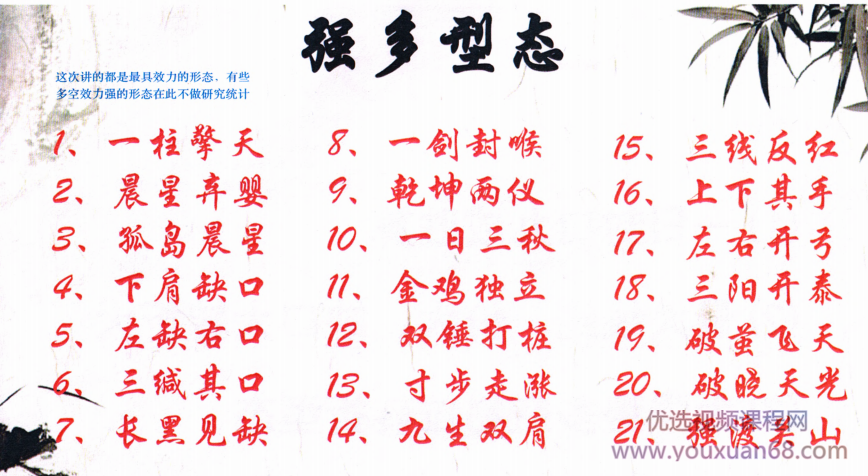 强多型态
这次讲的都是最具效力的形态，有些
多空效力强的形态在此不做研究统计
1、一柱擎天
2、晨星弃婴
3、孤岛晨星
4、下肩缺口
5、左缺右口
6、三缄其口
7、长黑见缺
8、一剑封喉
9、乾坤两仪
10、一日三秋
11、金鸡独立
12、双锤打桩
13、寸步走涨
14、九生双肩
15、三线反红
16、上下其手
17、左右开弓
18、三阳开泰
19、破茧飞天
20、破晓天光
21、强渡关山
优选视频课程网
www.youxuan68.com